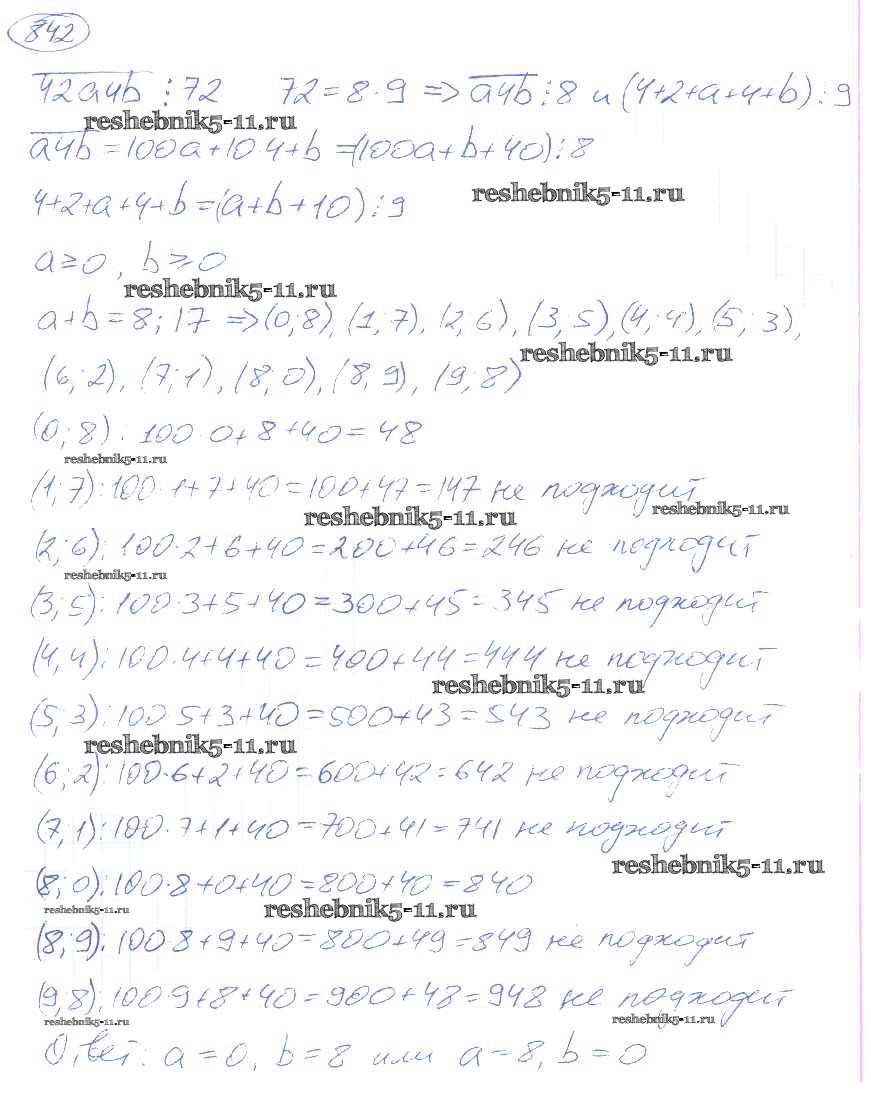 842
42a4b ⋮ 72    72 = 8 · 9 => a4b ⋮ 8 и (4+2+a+4+b) ⋮ 9
reshebnik5-11.ru
a4b = 100a + 10·4 + b = (100a + b + 40) ⋮ 8
4+2+a+4+b = (a+b+10) ⋮ 9
reshebnik5-11.ru
a ≥ 0, b ≥ 0
reshebnik5-11.ru
a+b = 8; 17 => (0; 8), (1; 7), (2, 6), (3; 5), (4; 4), (5; 3),
reshebnik5-11.ru
(6; 2), (7; 1), (8; 0), (8; 9), (9; 8)
(0; 8): 100 · 0 + 8 + 40 = 48
reshebnik5-11.ru
(1; 7): 100 · 1 + 7 + 40 = 100 + 47 = 147 не подходит
reshebnik5-11.ru
reshebnik5-11.ru
(2; 6): 100 · 2 + 6 + 40 = 200 + 46 = 246 не подходит
reshebnik5-11.ru
(3; 5): 100 · 3 + 5 + 40 = 300 + 45 = 345 не подходит
(4, 4): 100 · 4 + 4 + 40 = 400 + 44 = 444 не подходит
reshebnik5-11.ru
(5, 3): 100 5 + 3 + 40 = 500 + 43 = 543 не подходит
reshebnik5-11.ru
(6; 2): 100 · 6 + 2 + 40 = 600 + 42 = 642 не подходит
(7, 1): 100 · 7 + 1 + 40 = 700 + 41 = 741 не подходит
reshebnik5-11.ru
(8; 0): 100 · 8 + 0 + 40 = 800 + 40 = 840
reshebnik5-11.ru
reshebnik5-11.ru
(8; 9): 100 · 8 + 9 + 40 = 800 + 49 = 849 не подходит
(9; 8): 100 9 + 8 + 40 = 900 + 48 = 948 не подходит
reshebnik5-11.ru
reshebnik5-11.ru
Ответ: a = 0, b = 8 или a = 8, b = 0